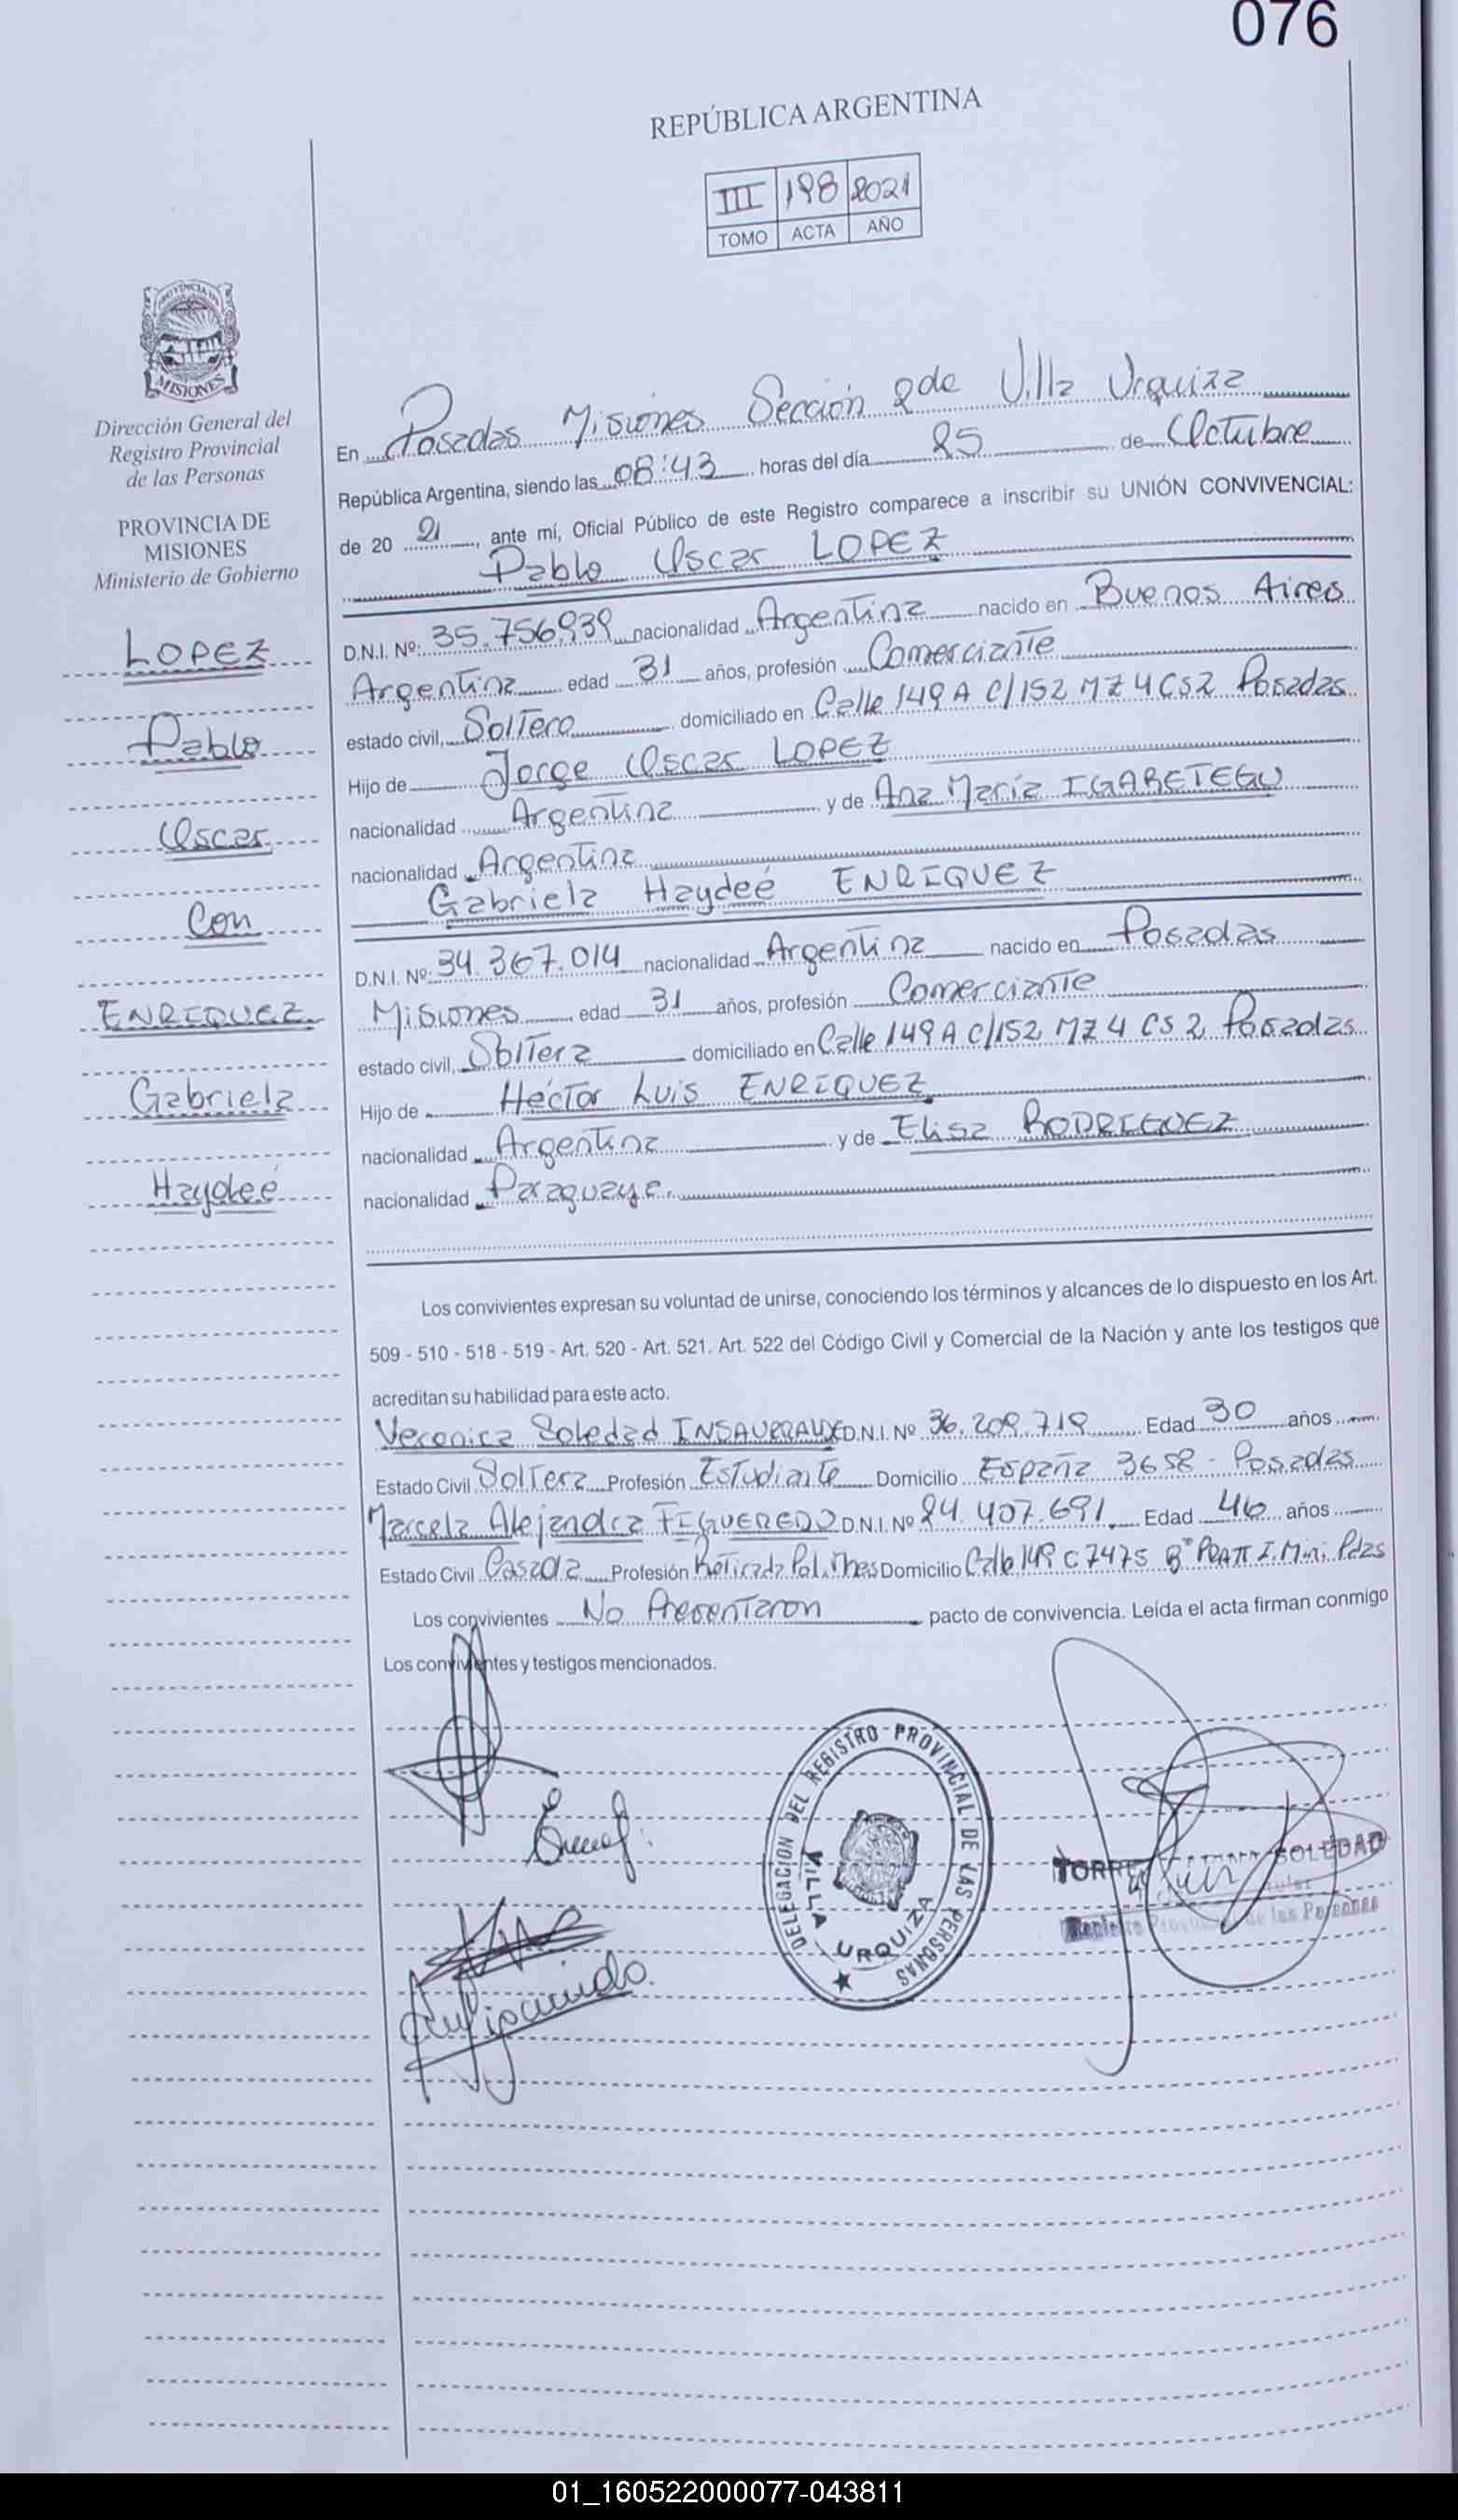 076
REPÚBLICA ARGENTINA
III 198 2021
TOMO ACTA AÑO
PROVINCIA DE
MISIONES
Dirección General del
Registro Provincial
de las Personas
PROVINCIA DE
MISIONES
Ministerio de Gobierno
LOPEZ
Pablo
Oscar
Con
ENRIQUEZ
Gabriela
Haydeé
En Posadas Misiones Sección 2da Villa Urquiza
República Argentina, siendo las 08:43 horas del día 25 de Octubre
de 20 21, ante mí, Oficial Público de este Registro comparece a inscribir su UNIÓN CONVIVENCIAL:
Pablo Oscar LOPEZ
D.N.I. Nº: 35.756.939 nacionalidad Argentina nacido en Buenos Aires
Argentina edad 31 años, profesión Comerciante
estado civil, Soltero domiciliado en Calle 149 A C/152 MZ 4 CS2 Posadas
Hijo de Jorge Oscar LOPEZ
nacionalidad Argentina y de Ana María IGARETEGU
nacionalidad Argentina
Gabriela Haydeé ENRIQUEZ
D.N.I. Nº: 34.367.014 nacionalidad Argentina nacido en Posadas
Misiones edad 31 años, profesión Comerciante
estado civil, Soltera domiciliado en Calle 149 A C/152 MZ 4 CS 2 Posadas
Hijo de Héctor Luis ENRIQUEZ
nacionalidad Argentina y de Elisa RODRIGUEZ
nacionalidad Paraguaya.
Los convivientes expresan su voluntad de unirse, conociendo los términos y alcances de lo dispuesto en los Art.
509 - 510 - 518 - 519 - Art. 520 - Art. 521. Art. 522 del Código Civil y Comercial de la Nación y ante los testigos que
acreditan su habilidad para este acto.
Veronica Soledad INSAURRALDE D.N.I. Nº 36.209.719 Edad 30 años
Estado Civil Soltera Profesión Estudiante Domicilio España 3658 - Posadas
Marcela Alejandra FIGUEREDO D.N.I. Nº 24.407.691 Edad 46 años
Estado Civil Casada Profesión Retirada Pol. Mnes Domicilio Calle 149 C 7475 Bº I. Mni. Pdas
Los convivientes No Presentaron pacto de convivencia. Leída el acta firman conmigo
Los convivientes y testigos mencionados.
DELEGACION DEL REGISTRO PROVINCIAL DE LAS PERSONAS
VILLA URQUIZA
SOLEDAD
Registro Provincial de las Personas
01_160522000077-043811